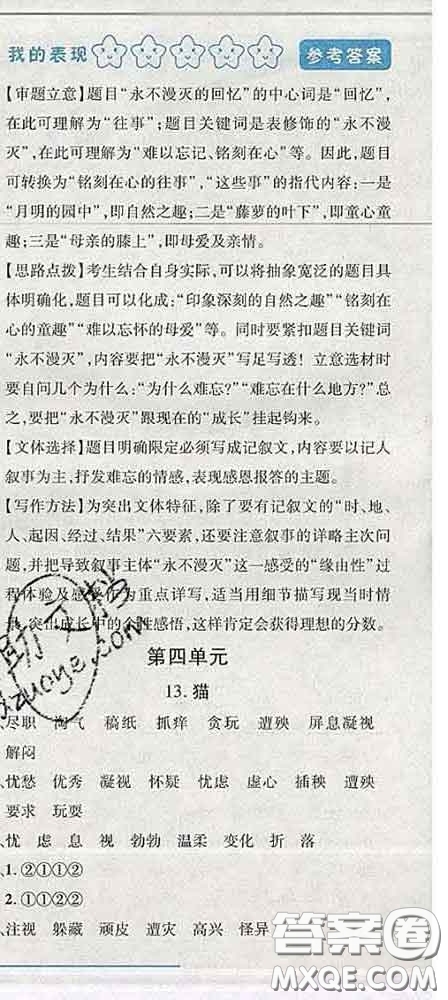 我的表现
参考答案
【审题立意】题目“永不漫灭的回忆”的中心词是“回忆”,
在此可理解为“往事”;题目关键词是表修饰的“永不漫
灭”,在此可理解为“难以忘记、铭刻在心”等。因此,题目
可转换为“铭刻在心的往事”,“这些事”的指代内容:一是
“月明的园中”,即自然之趣;二是“藤萝的叶下”,即童心童
趣;三是“母亲的膝上”,即母爱及亲情。
【思路点拨】考生结合自身实际,可以将抽象宽泛的题目具
体明确化,题目可以化成:“印象深刻的自然之趣”“铭刻在
心的童趣”“难以忘怀的母爱”等。同时要紧扣题目关键词
“永不漫灭”,内容要把“永不漫灭”写足写透!立意选材时
要自问几个为什么:“为什么难忘?”“难忘在什么地方?”总
之,要把“永不漫灭”跟现在的“成长”挂起钩来。
【文体选择】题目明确限定必须写成记叙文,内容要以记人
叙事为主,抒发难忘的情感,表现感恩报答的主题。
【写作方法】为突出文体特征,除了要有记叙文的“时、地、
人、起因、经过、结果”六要素,还要注意叙事的详略主次问
题,并把导致叙事主体“永不漫灭”这一感受的“缘由性”过
程体验及感受作为重点详写,适当用细节描写现当时情
景,突出成长中的个性感悟,这样肯定会获得理想的分数。
第四单元
13.猫
、尽职 淘气 稿纸 抓痒 贪玩 遭殃 屏息凝视
解闷
、忧愁 优秀 凝视 怀疑 忧虑 虚心 插秧 遭殃
要求 玩耍
、忧 虑 息 视 勃勃 温柔 变化 折 落
、1.②①①②
2.①①②②
、注视 躲藏 顽皮 遭灾 高兴 怪异
助文档
zuoye.com
答案圈
MXQE.COM